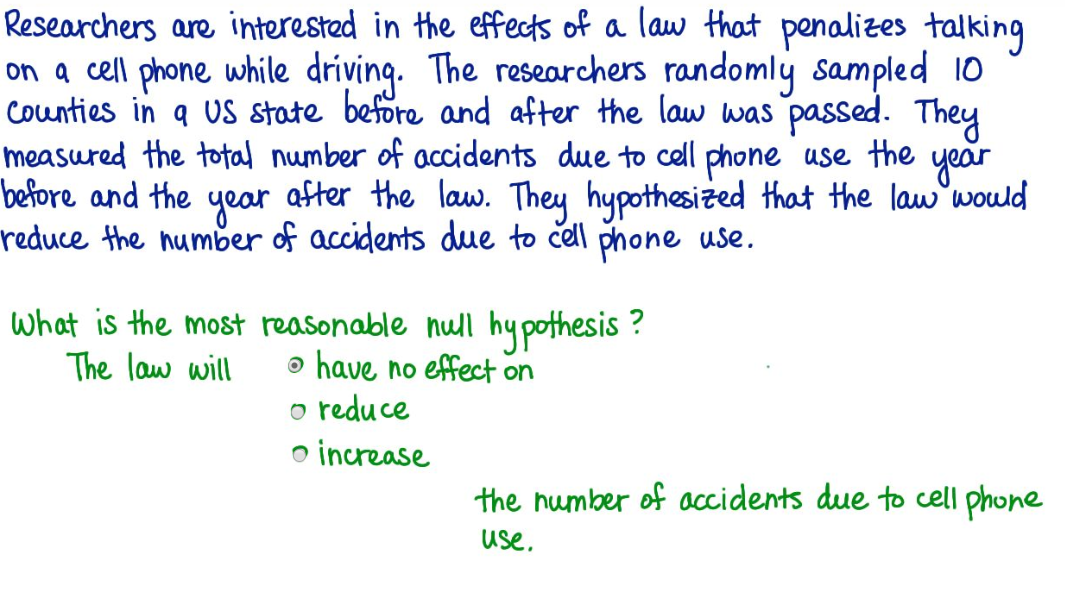 Researchers are interested in the effects of a law that penalizes talking
on a cell phone while driving. The researchers randomly sampled 10
counties in a US state before and after the law was passed. They
measured the total number of accidents due to cell phone use the year
before and the year after the law. They hypothesized that the law would
reduce the number of accidents due to cell phone use.
What is the most reasonable null hypothesis?
The law will have no effect on
reduce
increase
the number of accidents due to cell phone
use.